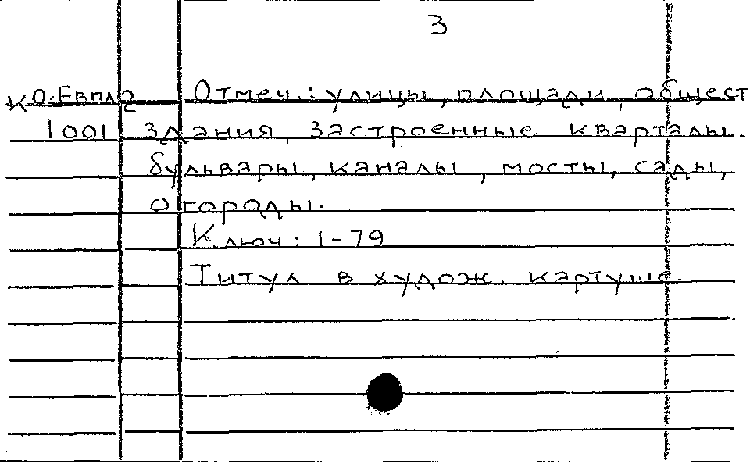 3
К О-Евпл2 Отмеч.: улицы, площади, общест
1001 здания, застроенные кварталы.
бульвары, каналы, мосты, сады,
огороды.
Ключ: 1-79
Титул в худож. картуше